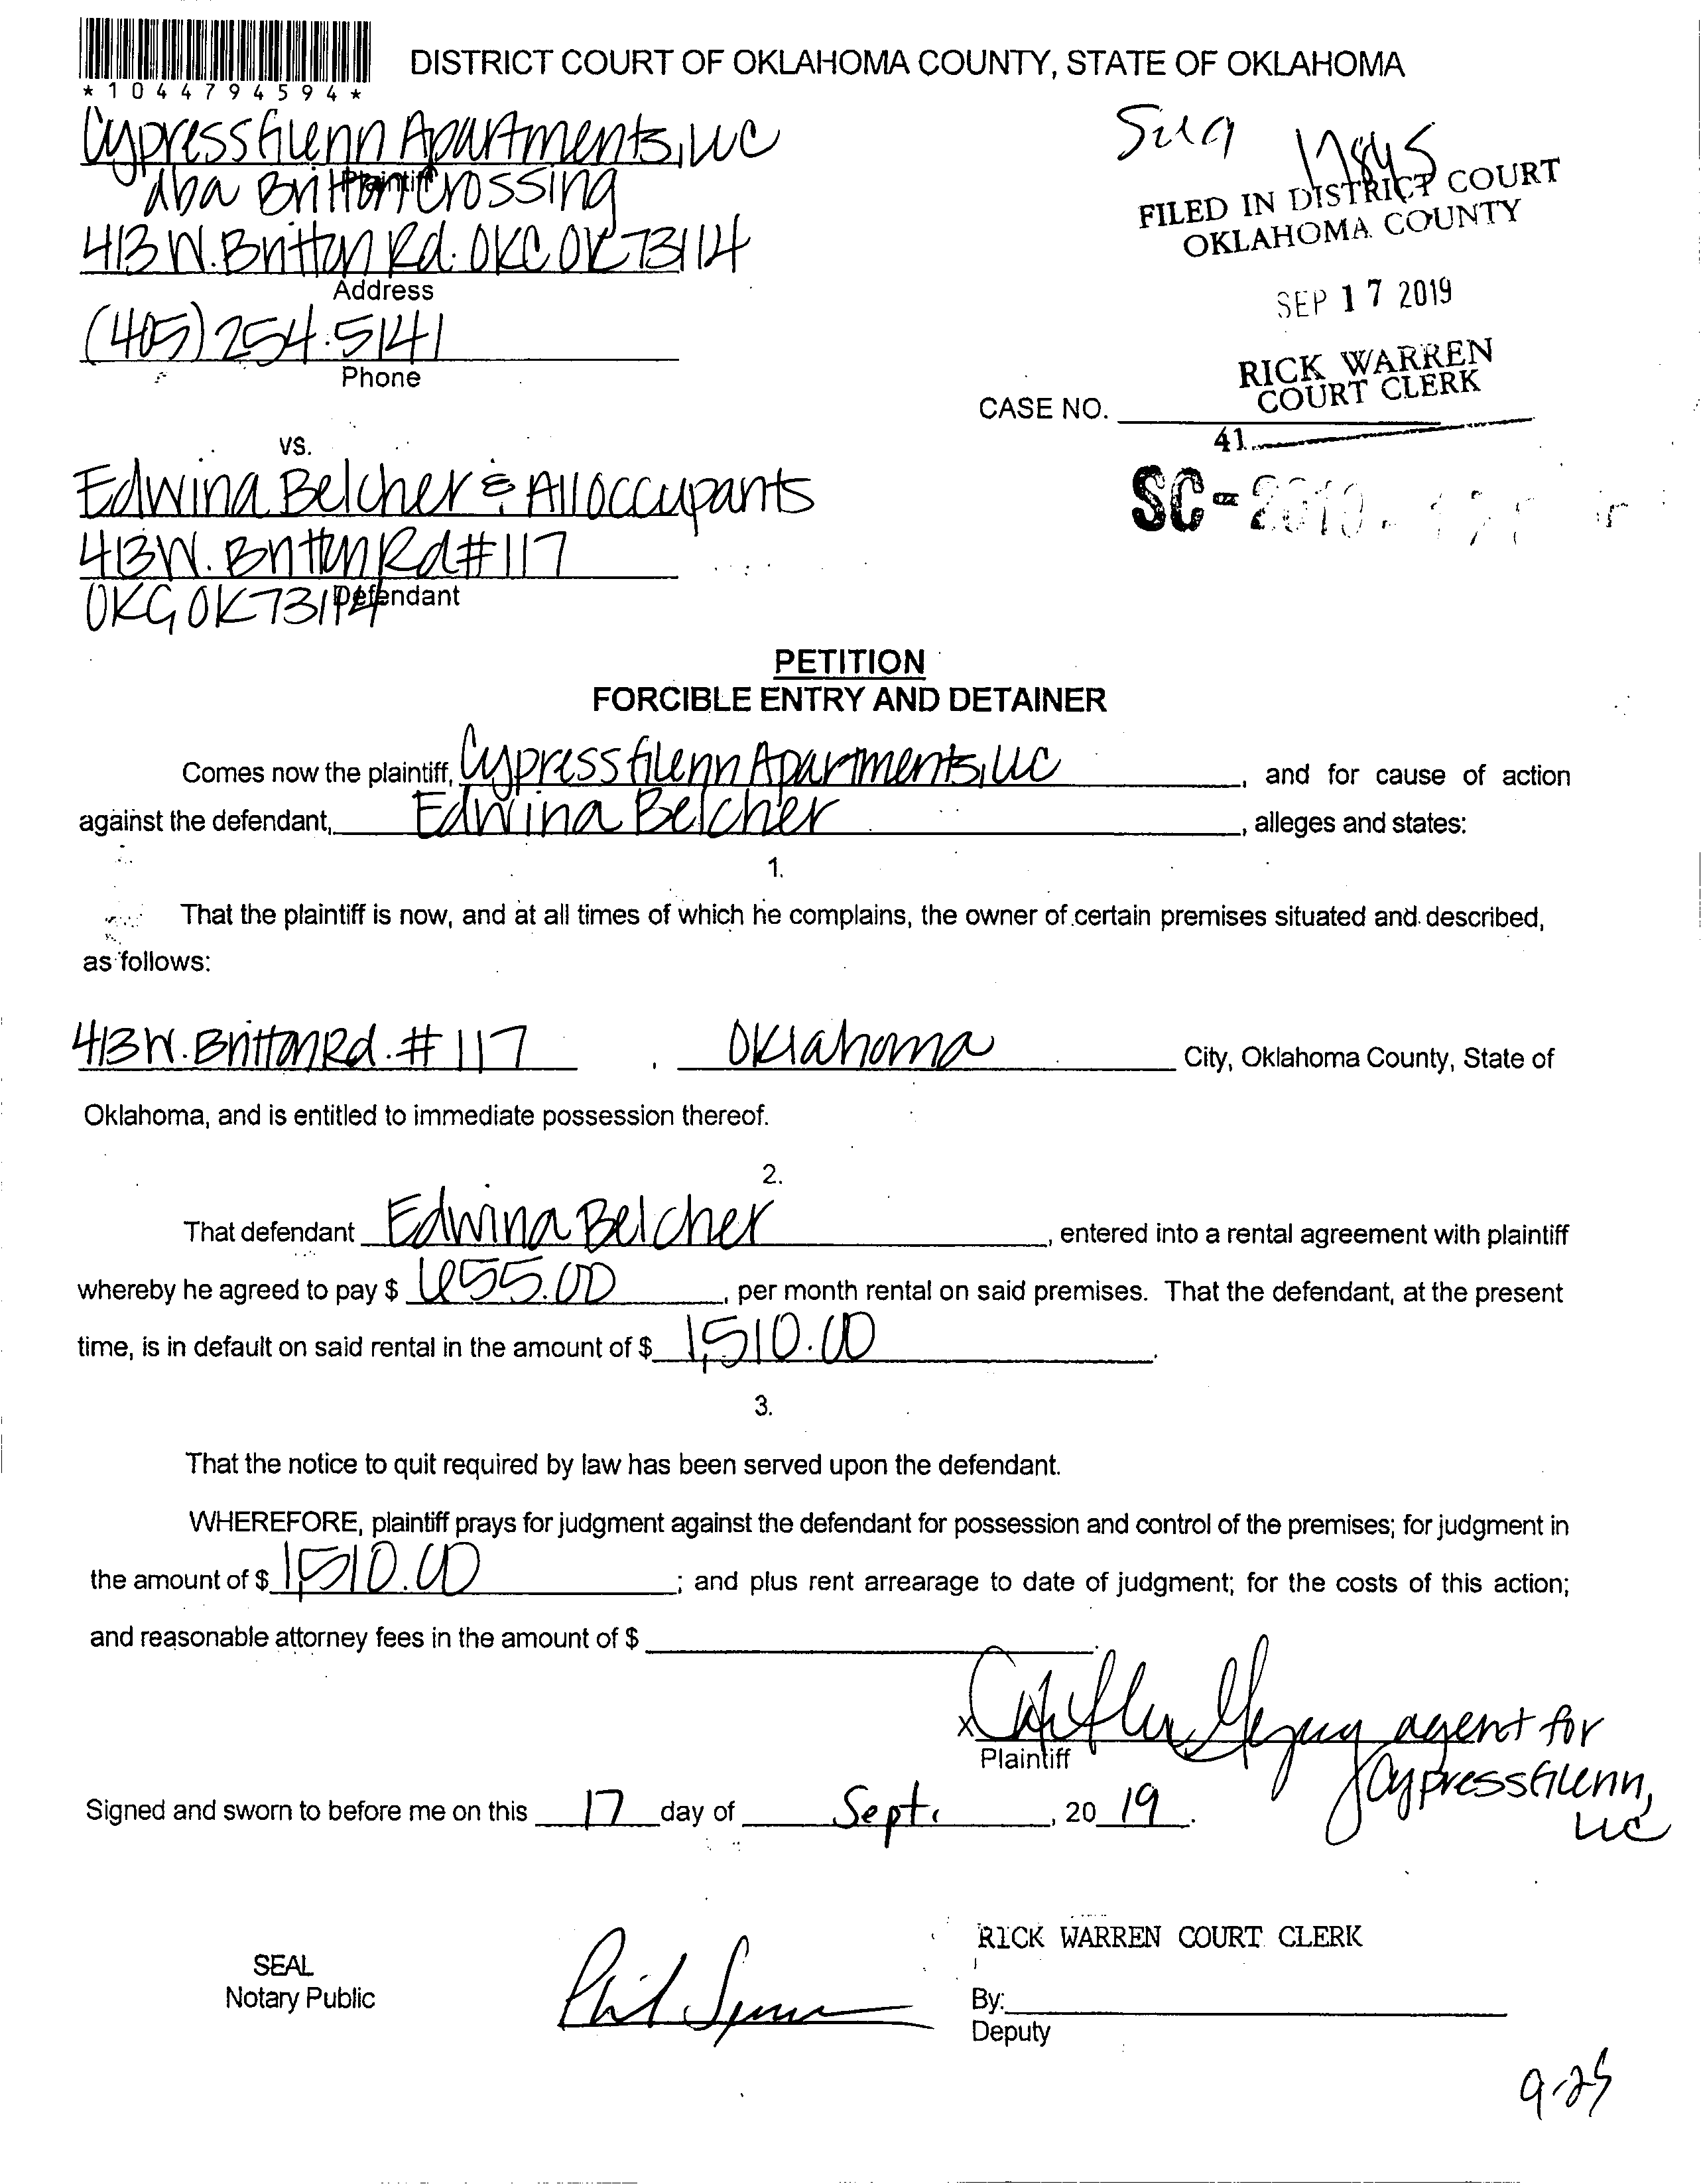 *1044794594*
DISTRICT COURT OF OKLAHOMA COUNTY, STATE OF OKLAHOMA
Cypress Glenn Apartments, LLC
Plaintiff
dba Britton Crossing
413 W. Britton Rd. OKC OK 73114
Address
(405) 254.5141
Phone
17845
FILED IN DISTRICT COURT
OKLAHOMA COUNTY
SEP 17 2019
RICK WARREN
COURT CLERK
CASE NO.
41
SC-2019-
VS.
Edwina Belcher & All occupants
413 W. Britton Rd #117
OKC, OK 73114
Defendant
PETITION
FORCIBLE ENTRY AND DETAINER
Comes now the plaintiff, Cypress Glenn Apartments, LLC, and for cause of action
against the defendant, Edwina Belcher, alleges and states:
1.
That the plaintiff is now, and at all times of which he complains, the owner of certain premises situated and described,
as follows:
413 W. Britton Rd. #117, Oklahoma City, Oklahoma County, State of
Oklahoma, and is entitled to immediate possession thereof.
2.
That defendant Edwina Belcher, entered into a rental agreement with plaintiff
whereby he agreed to pay $ 655.00, per month rental on said premises. That the defendant, at the present
time, is in default on said rental in the amount of $ 1,510.00.
3.
That the notice to quit required by law has been served upon the defendant.
WHEREFORE, plaintiff prays for judgment against the defendant for possession and control of the premises; for judgment in
the amount of $ 1,510.00; and plus rent arrearage to date of judgment; for the costs of this action;
and reasonable attorney fees in the amount of $
x agent for
Plaintiff
Cypress Glenn,
LLC
Signed and sworn to before me on this 17 day of Sept., 20 19.
RICK WARREN COURT CLERK
SEAL
Notary Public
By:
Deputy
9-25